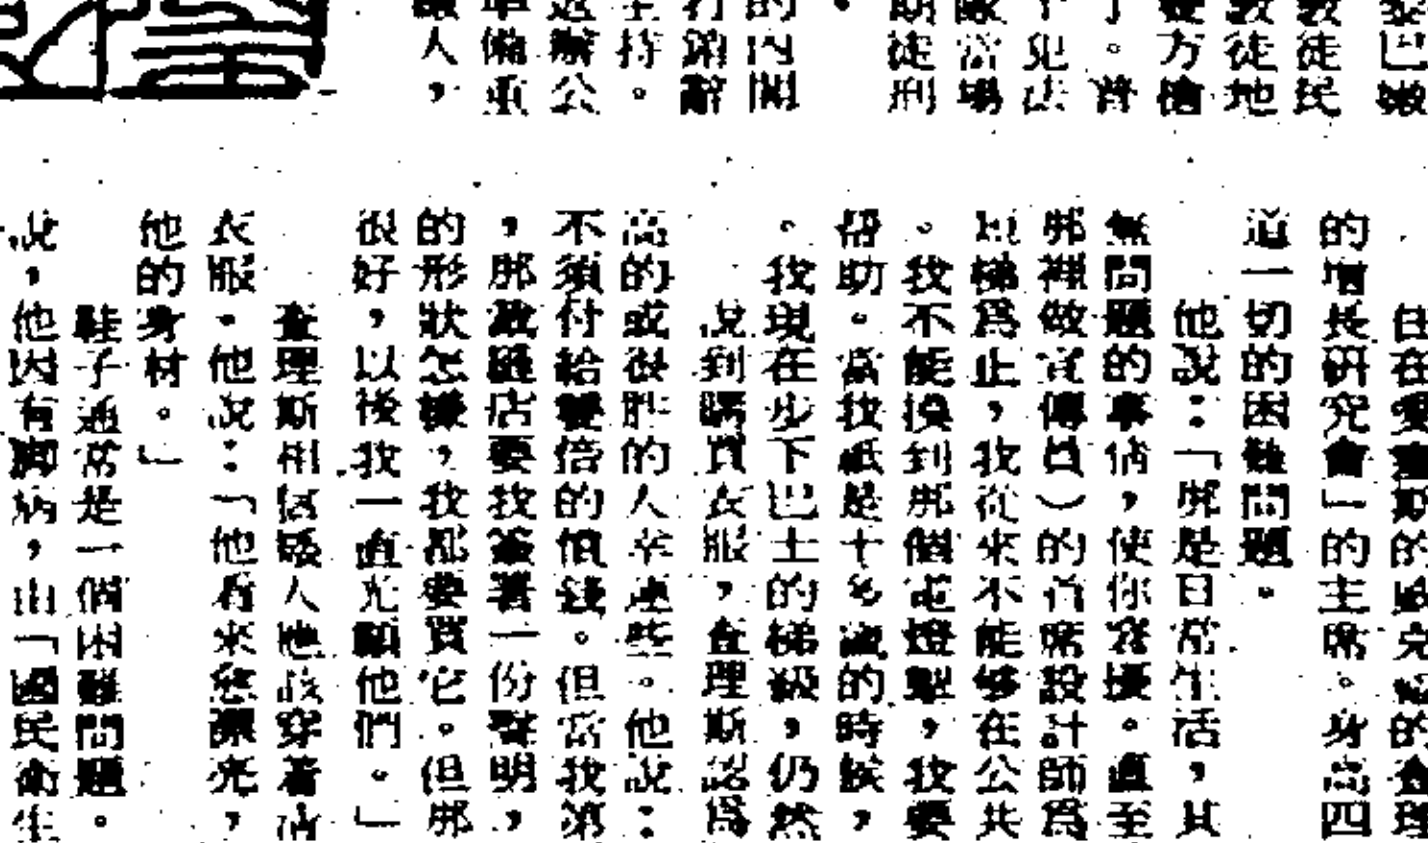 黎巴嫩
教徒民
教徒地
雙方槍
了。普
隊當場
期徒刑
。
的內閣
打銷辭
主持。
返辦公
準備重
讓人，
住在愛塞斯的威克的查理
的增長研究會」的主席。身高四
道一切的困難問題。
他說：「那是日常生活，其
無問題的事情，使你窘擾。直至
那裡做宣傳員）的首席設計師爲
梯爲止，我從來不能够在公共
。我不能摸到那個電燈掣，我要
幫助。當我祇是十歲的時候，
。我現在步下巴士的梯級，仍然
說到購買衣服，查理斯認爲
高的或很胖的人幸運些。他說：
不須付給雙倍的價錢。但當我第
，那裁縫店要我簽署一份聲明，
的形狀怎樣，我都要買它。但那
很好，以後我一直光顧他們。」
查理斯相信矮人應該穿着清
衣服。他說：「他看來漂亮，
他的身材。」
鞋子通常是一個困難問題。
說，他因有脚病，由「國民衞生